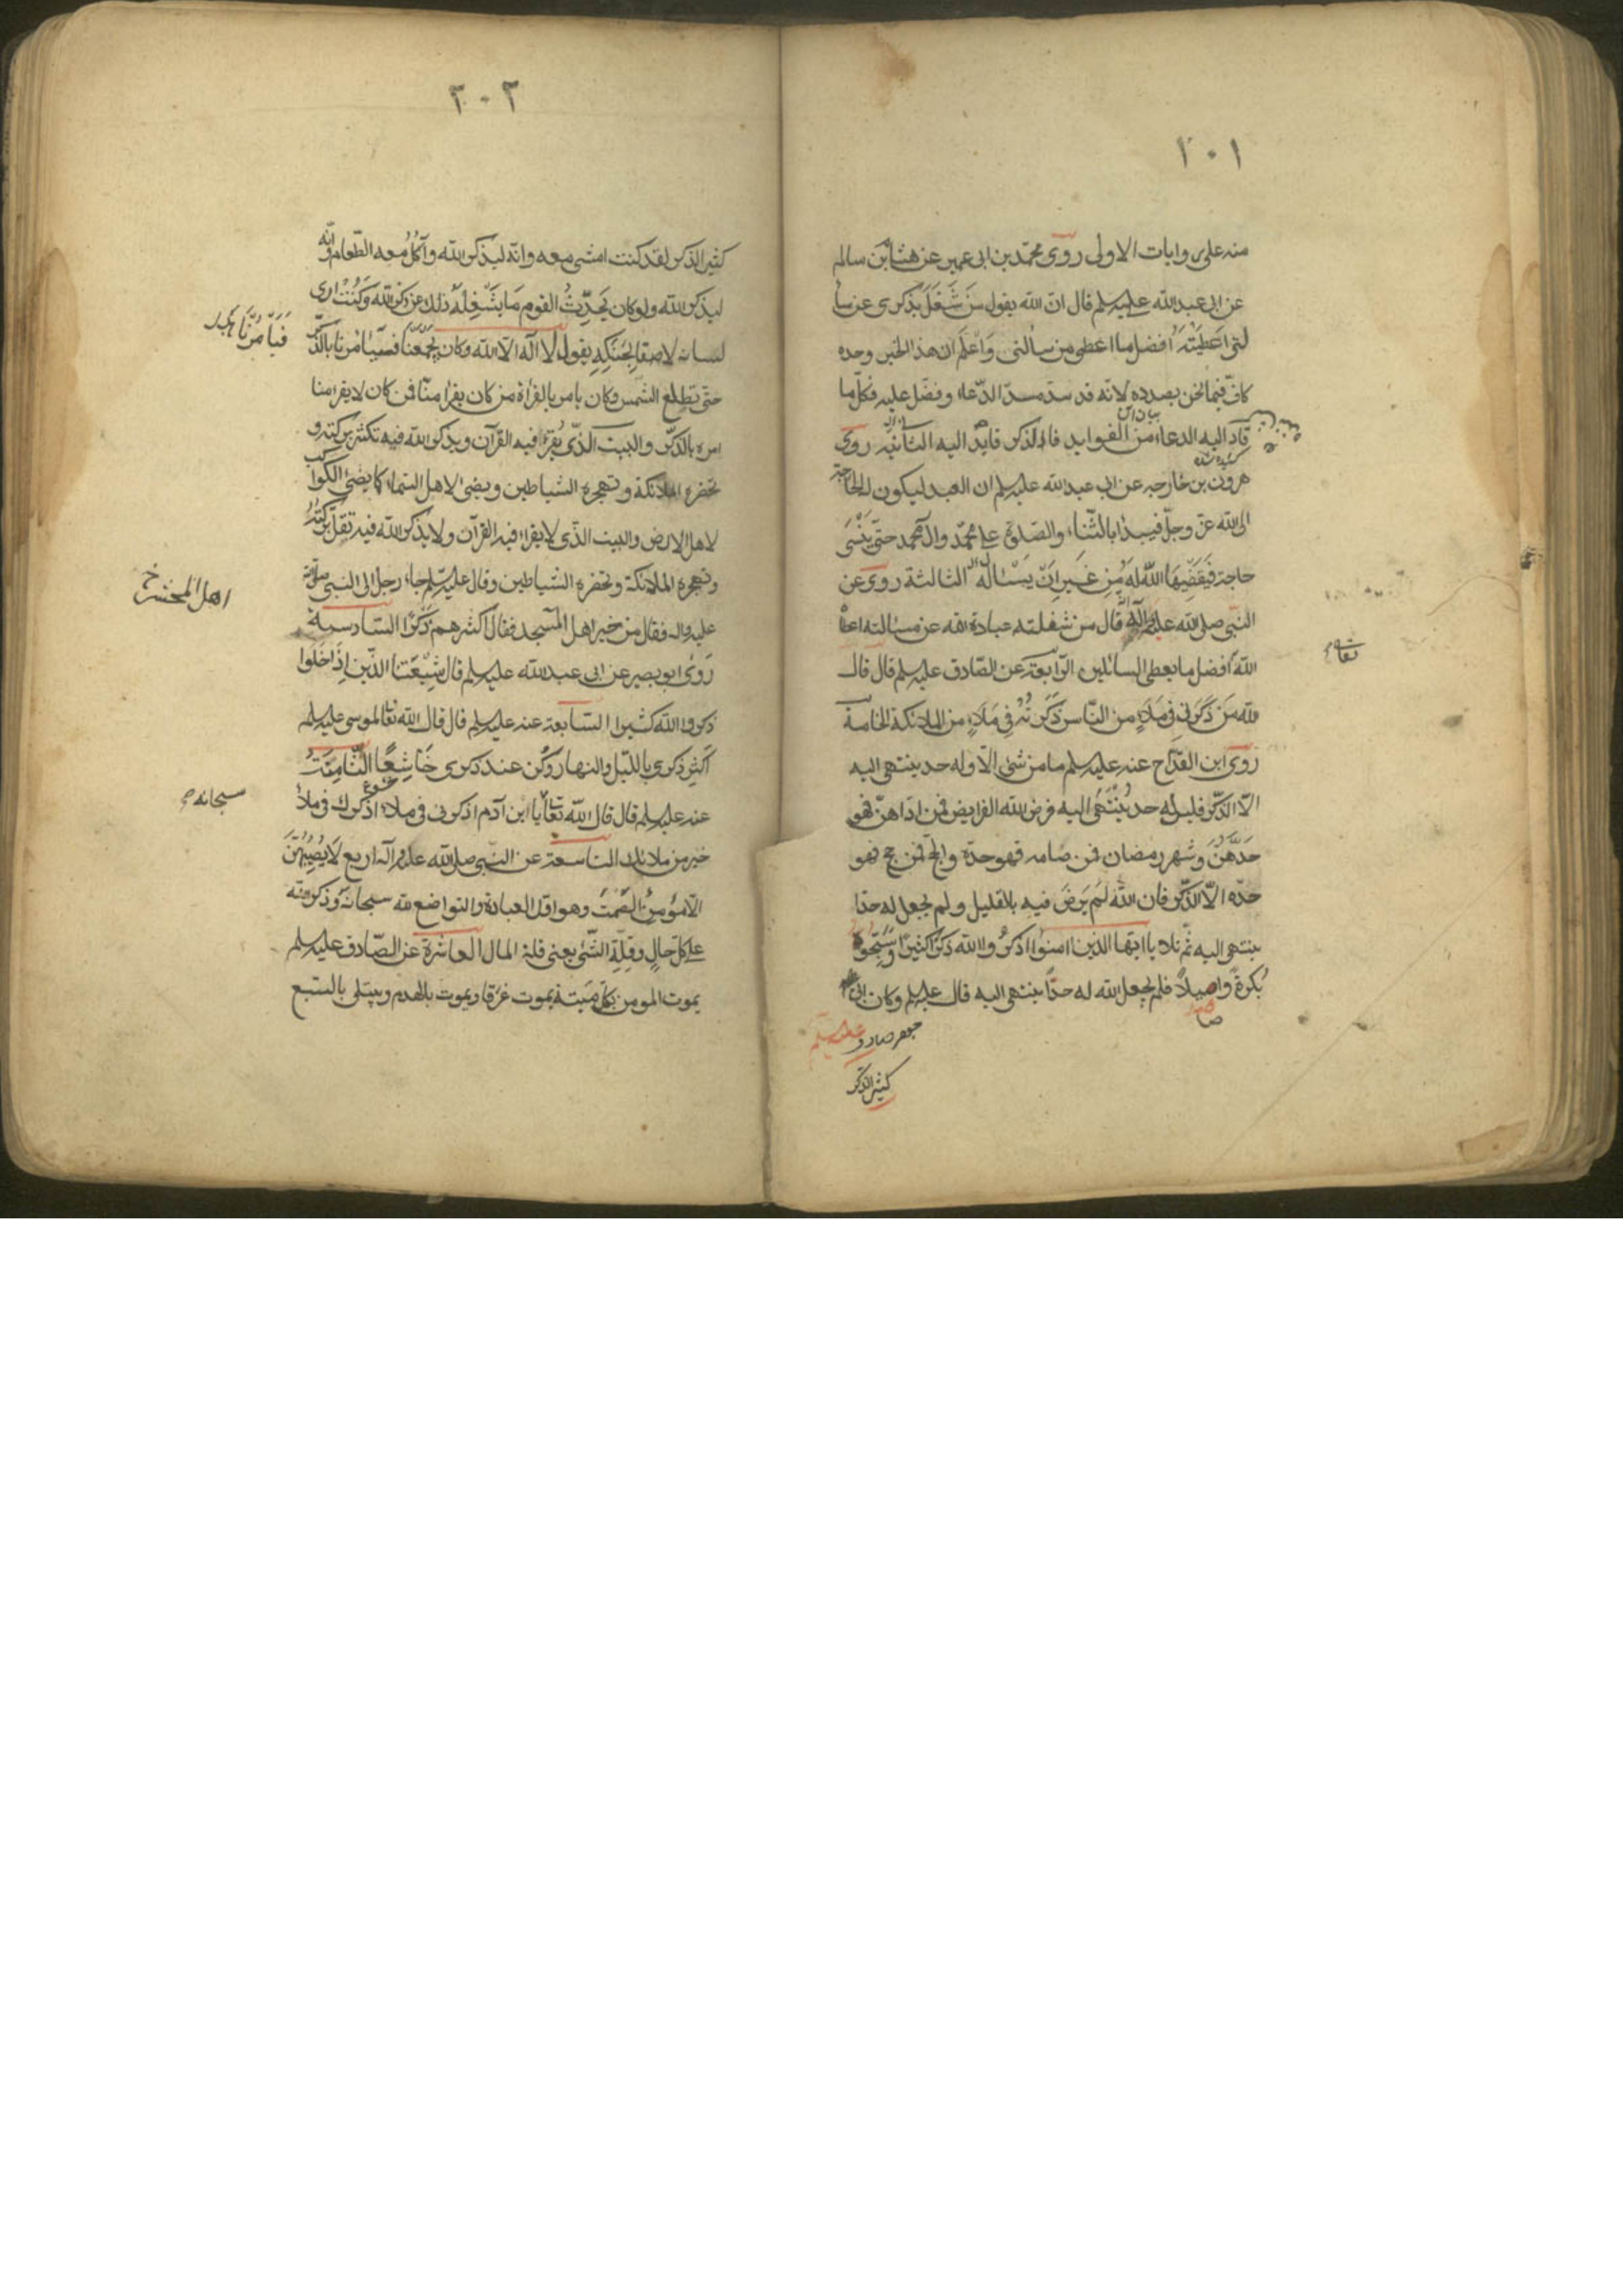 ٢٠١
منه على روايات الاولى روى محمّد بن ابى عمير عن هشام بن سالم
عن ابى عبد الله عليه السلم قال انّ الله يقول مَن شَغَلَ بِذكرى عن مسأ
لتى اَعطَيتُه اَفضل ما اعطى من سالنى وَاعْلَم ان هذا الخبر وحده
كافٍ فيما نحن بصدده لانّه قد سدّ مسدّ الدّعاء وفضّل عليه فكلّ ما
قاد اليه الدعاء من الفوايد فالذكر قايد اليه الثانيه روى
هرون بن خارجه عن ابى عبد الله عليه السلم ان العبد ليكون له الحاجة
الى الله عزّ وجلّ فيبدا بالثّناء والصّلوة على محمّد وال محمد حتّى يَنْسَى
حاجته فَيَقضِيهَا اللّهُ لَه مِن غَيرِ اَنْ يَسْئَالَه الثالثة روى عن
النّبى صلى الله عليه وآله قال من شغلته عبادة الله عن مسالته اعطاه
الله افضل ما يعطى السائلين الرّابعة عن الصّادق عليه السلم قال قال
الله مَن ذَكَرَنى فِى مَلَاءٍ من النّاس ذَكَرتُهُ فِى مَلَاءٍ من الملائكة الخامسة
رَوى ابن القدّاح عنه عليه السلم ما من شئ الّا وله حد ينتهى اليه
الّا الذّكر فليس له حد يُنْتَهَى اليه فرض الله الفرايض فمن ادّاهنّ فهو
حَدّهُنَّ وشهر رمضان فمن صامه فهو حدّه والحج فمن حج فهو
حدّه الّا الذّكر فان اللّه لَم يَرضَ فيه بالقليل ولم يجعل له حدّا
ينتهى اليه ثمّ تلا يا ايّها الذين امنوا اذكرُوا الله ذكرًا كثيرًا وَسَبِّحوهُ
بُكرةً واصيلًا فلم يجعل الله له حدّاً ينتهى اليه قال عليه السلم وكان ابى
جعفر صادق عليه السلم
كثير الذّكر
تعالى
٢٠٢
كثير الذّكر لقد كنت امشى معه وانّه ليذكر اللّه وآكُلُ معه الطّعام وانّه
ليذكر الله ولو كان يُحَدِّثُ القوم مَا يَشْغِلهُ ذلك عن ذكر اللّه وَكُنتُ ارى
لسانه لاصقا بِحَنَكِهِ يقول لا اله الّا اللّه وكان يَجْمَعُنَا فيأمرنا بالذّكر
حتى تطلع الشّمس وكان يامر بالقرأة من كان يقرأ منّا فمن كان لا يقرا منا
امره بالذّكر والبيت الّذى يُقرَءُ فيه القرآن ويذكر اللّه فيه تكثر بركته و
تحضره الملائكة وتهجره الشياطين ويضئ لاهل السّماء كما يضئ الكواكب
لاهل الارض والبيت الّذى لا يقراء فيه القرآن ولا يذكر اللّه فيه تقلّ بركتُهُ
وتهجره الملائكة وتحضره الشّياطين وقال عليه السّلم جاء رجل الى النبى صلى الله
عليه واله فقال من خير اهل المسجد فقال اكثرهم ذِكرًا السّادسة
رَوى ابو بصير عن ابى عبد الله عليه السلم قال شِيْعَتنا الّذين اِذَا خَلَوا
ذكروا الله كثيرا السّابعة عنه عليه السلم قال قال اللّه تعالى لموسى عليه السلم
اَكثِر ذكرى بالليل والنهار وَكُن عند ذكرى خَاشِعًا الثّامِنَةُ
عنه عليه السلم قال قال اللّه تعالى يا ابن آدم اذكرنى فى ملاء اذكرك فى ملاء
خير من ملائك التاسعة عن النّبى صلى الله عليه وآله اربع لَا يُصِيبُهُنَّ
الّا مؤمن الصَّمتُ وهو اوّل العبادة والتواضع لله سبحانه وذكر الله
على كلّ حالٍ وقِلَّة الشّئ يعنى قلة المال العاشرة عن الصّادق عليه السلم
يموت المومن بكلّ مَيتة يموت غرقا ويموت بالهدم ويبتلى بالسّبع
اهل المحشر خ
سبحانه